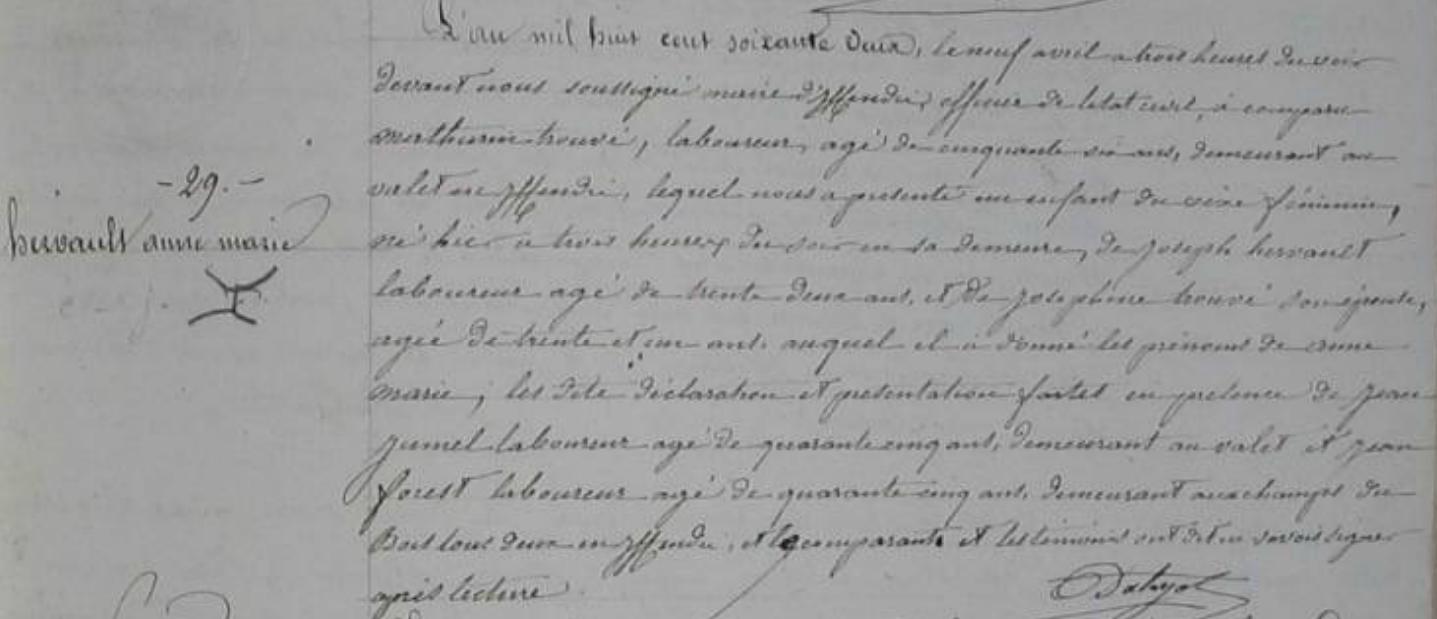 -29.-
hervault anne marie
L'an mil huit cent soixante deux, le neuf avril a trois heures du soir
devant nous soussigné maire d'Iffendic, officier de letat civil, à comparu
mathurin trouvé, laboureur, agé de cinquante six ans, demeurant au
valet en Iffendic, lequel nous a presenté un enfant du sexe féminin,
né hier a trois heures du soir en sa demeure, de joseph hervault
laboureur agé de trente deux ans, et de josephine trouvé son épouse,
agée de trente et un ans. auquel il à donné les prénoms de anne
marie; les dite déclaration et presentation faites en présence de jean
jumel laboureur agé de quarante cinq ans, demeurant au valet et jean
forest laboureur agé de quarante cinq ans, demeurant aux champs du
Bois tous deux en Iffendic, et le comparant et les témoins ont dit ne savoir signer
après lecture.